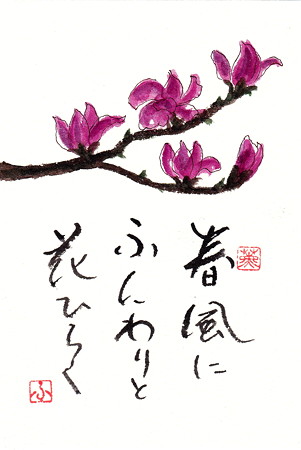 春風に
ふんわりと
花ひらく
ふ